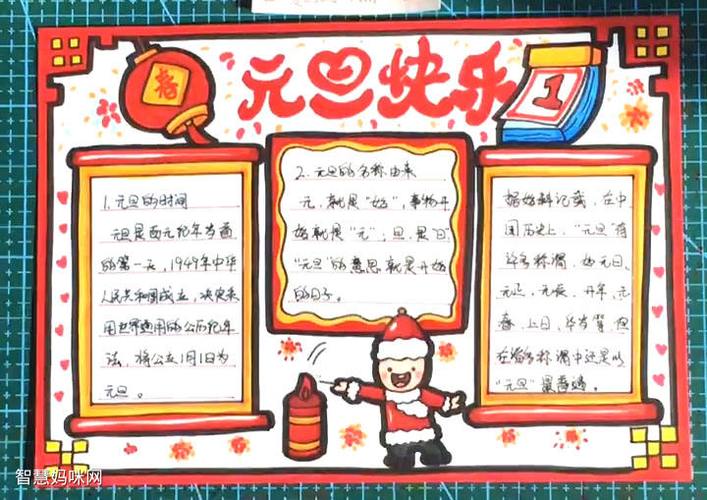 元旦快乐
春
1
1.元旦的时间
元旦是西元纪年岁首
的第一天,1949年中华
人民共和国成立,决定采
用世界通用的公历纪年
法,将公立1月1日为
元旦。
2.元旦的名称由来
元,就是“始”,事物开
始就是“元”;旦,是“日”
“元旦”的意思就是开始
的日子。
据资料记载,在中
国历史上,“元旦”有
许多称谓,如元日、
元正、元辰、开年、元
春、上日、华岁等,但
在诸多称谓中还是以
“元旦”最普遍。
智慧妈咪网